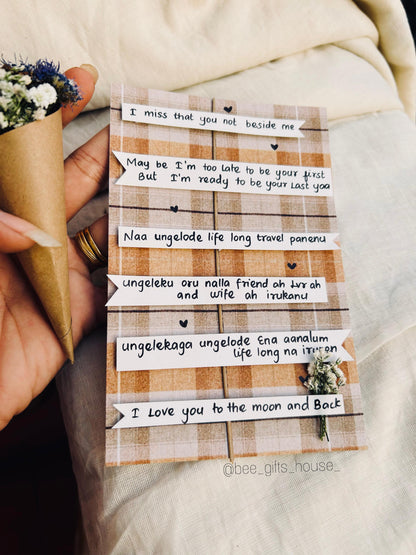 I miss that you not beside me
May be I'm too late to be your first
But I'm ready to be your Last yaa
Naa ungelode life long travel panenu
ungeleku oru nalla friend ah
and wife ah irukanu
ungelekaga ungelode Ena aanalum
life long na
I Love you to the moon and Back
@bee_gifts_house_